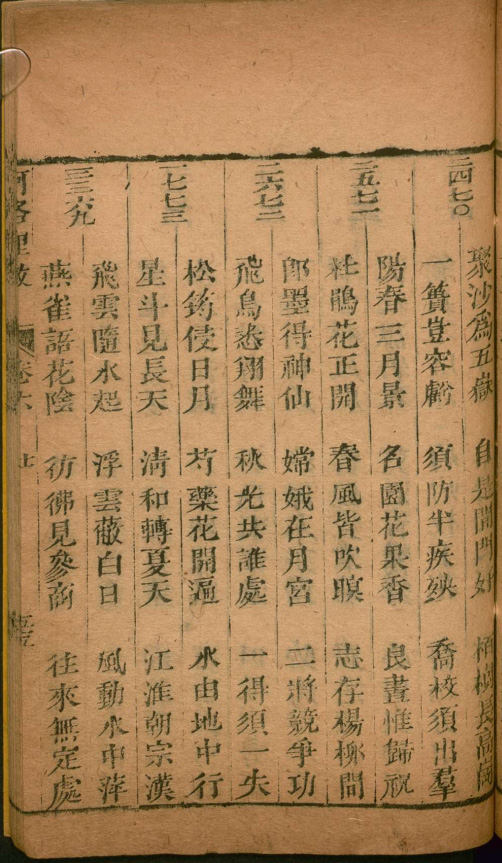 聚沙為五嶽 自是開門好 梧桐長高岡
二四七〇 一簣豈容虧 須防半疾殃 喬枝須出羣
陽春三月景 名園花果香 良晝惟歸祝
二五七一 杜鵑花正開 春風皆吹暝 志存楊柳間
郎墨得神仙 嫦娥在月宮 二將競爭功
二六七二 飛鳥悉翔舞 秋光共誰處 一得須一失
松筠使日月 芍藥花開遍 水由地中行
二七七三 星斗見長天 清和轉夏天 江淮朝宗漢
飛雲隨水起 浮雲蔽白日 風動水中萍
三三六九 燕雀語花陰 彷彿見參商 往來無定處
河洛理數 卷六